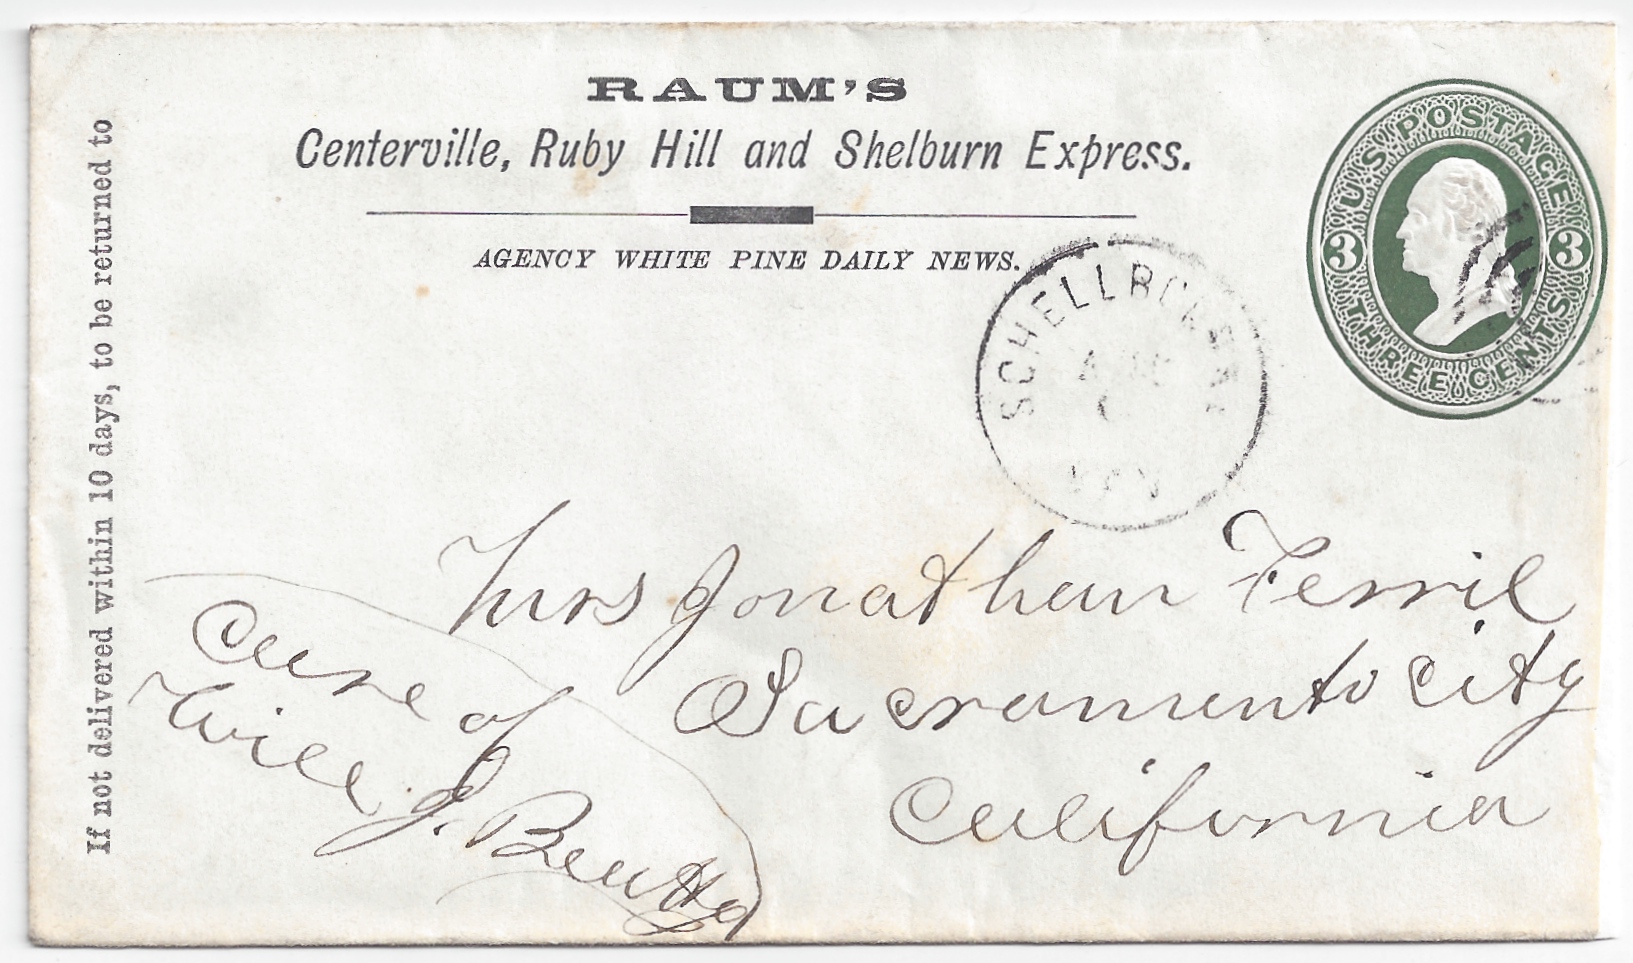 RAUM'S
Centerville, Ruby Hill and Shelburn Express.
AGENCY WHITE PINE DAILY NEWS.
If not delivered within 10 days, to be returned to
U.S. POSTAGE
3 3
THREE CENTS
SCHELLBOURNE
NEV
Mrs Jonathan Ferril
Sacramento City
California
Care of
Will J. Beutta